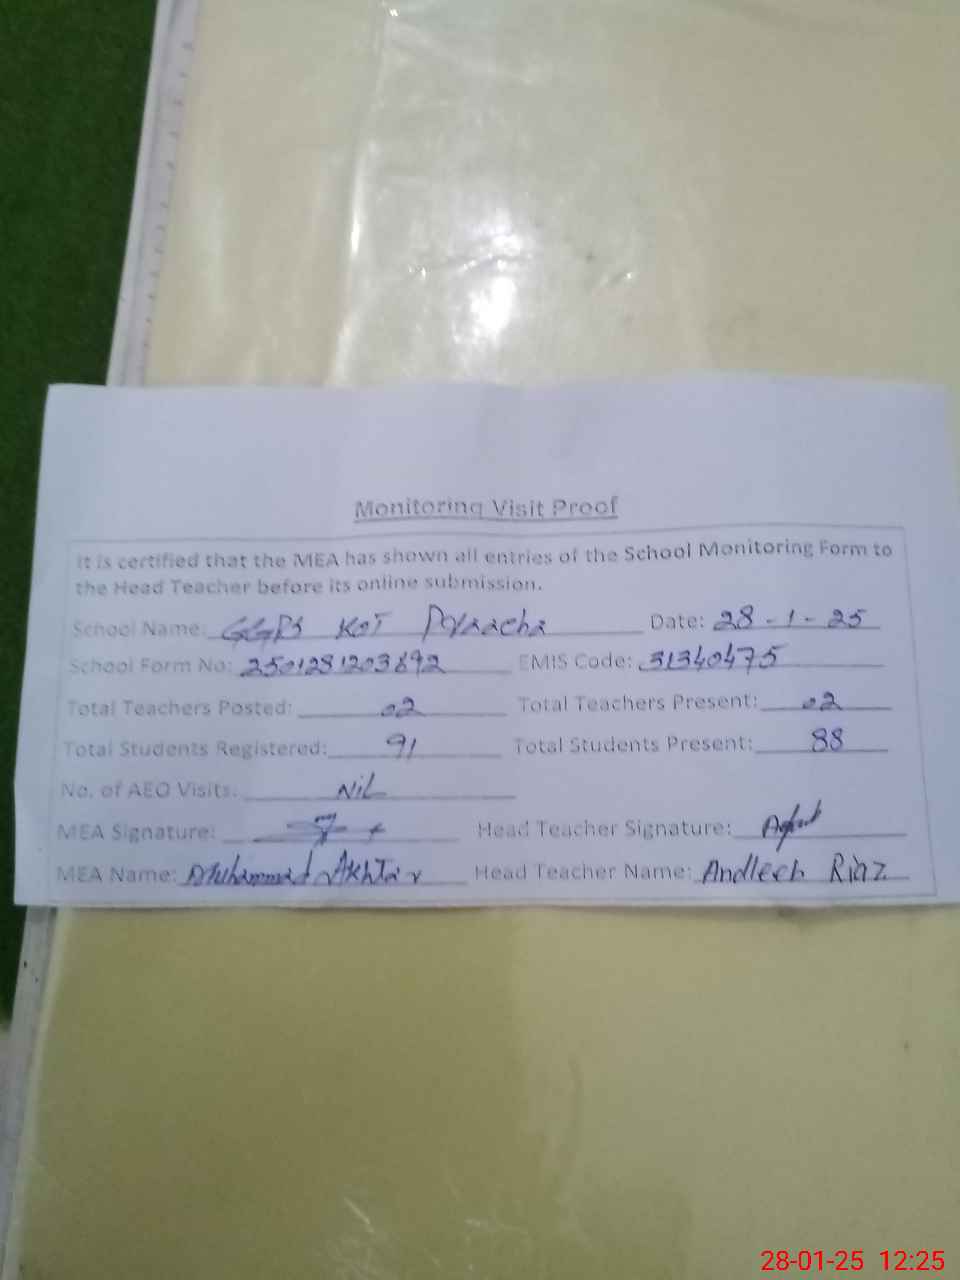 Monitoring Visit Proof
It is certified that the MEA has shown all entries of the School Monitoring Form to
the Head Teacher before its online submission.
School Name: GGPS KOT Date: 28-1-25
School Form No: 2501281203692 EMIS Code: 31340475
Total Teachers Posted: 02 Total Teachers Present: 02
Total Students Registered: 91 Total Students Present: 88
No. of AEO Visits: Nil
MEA Signature: Head Teacher Signature:
MEA Name: Muhammad Akhtar Head Teacher Name: Andleeb Riaz
28-01-25 12:25